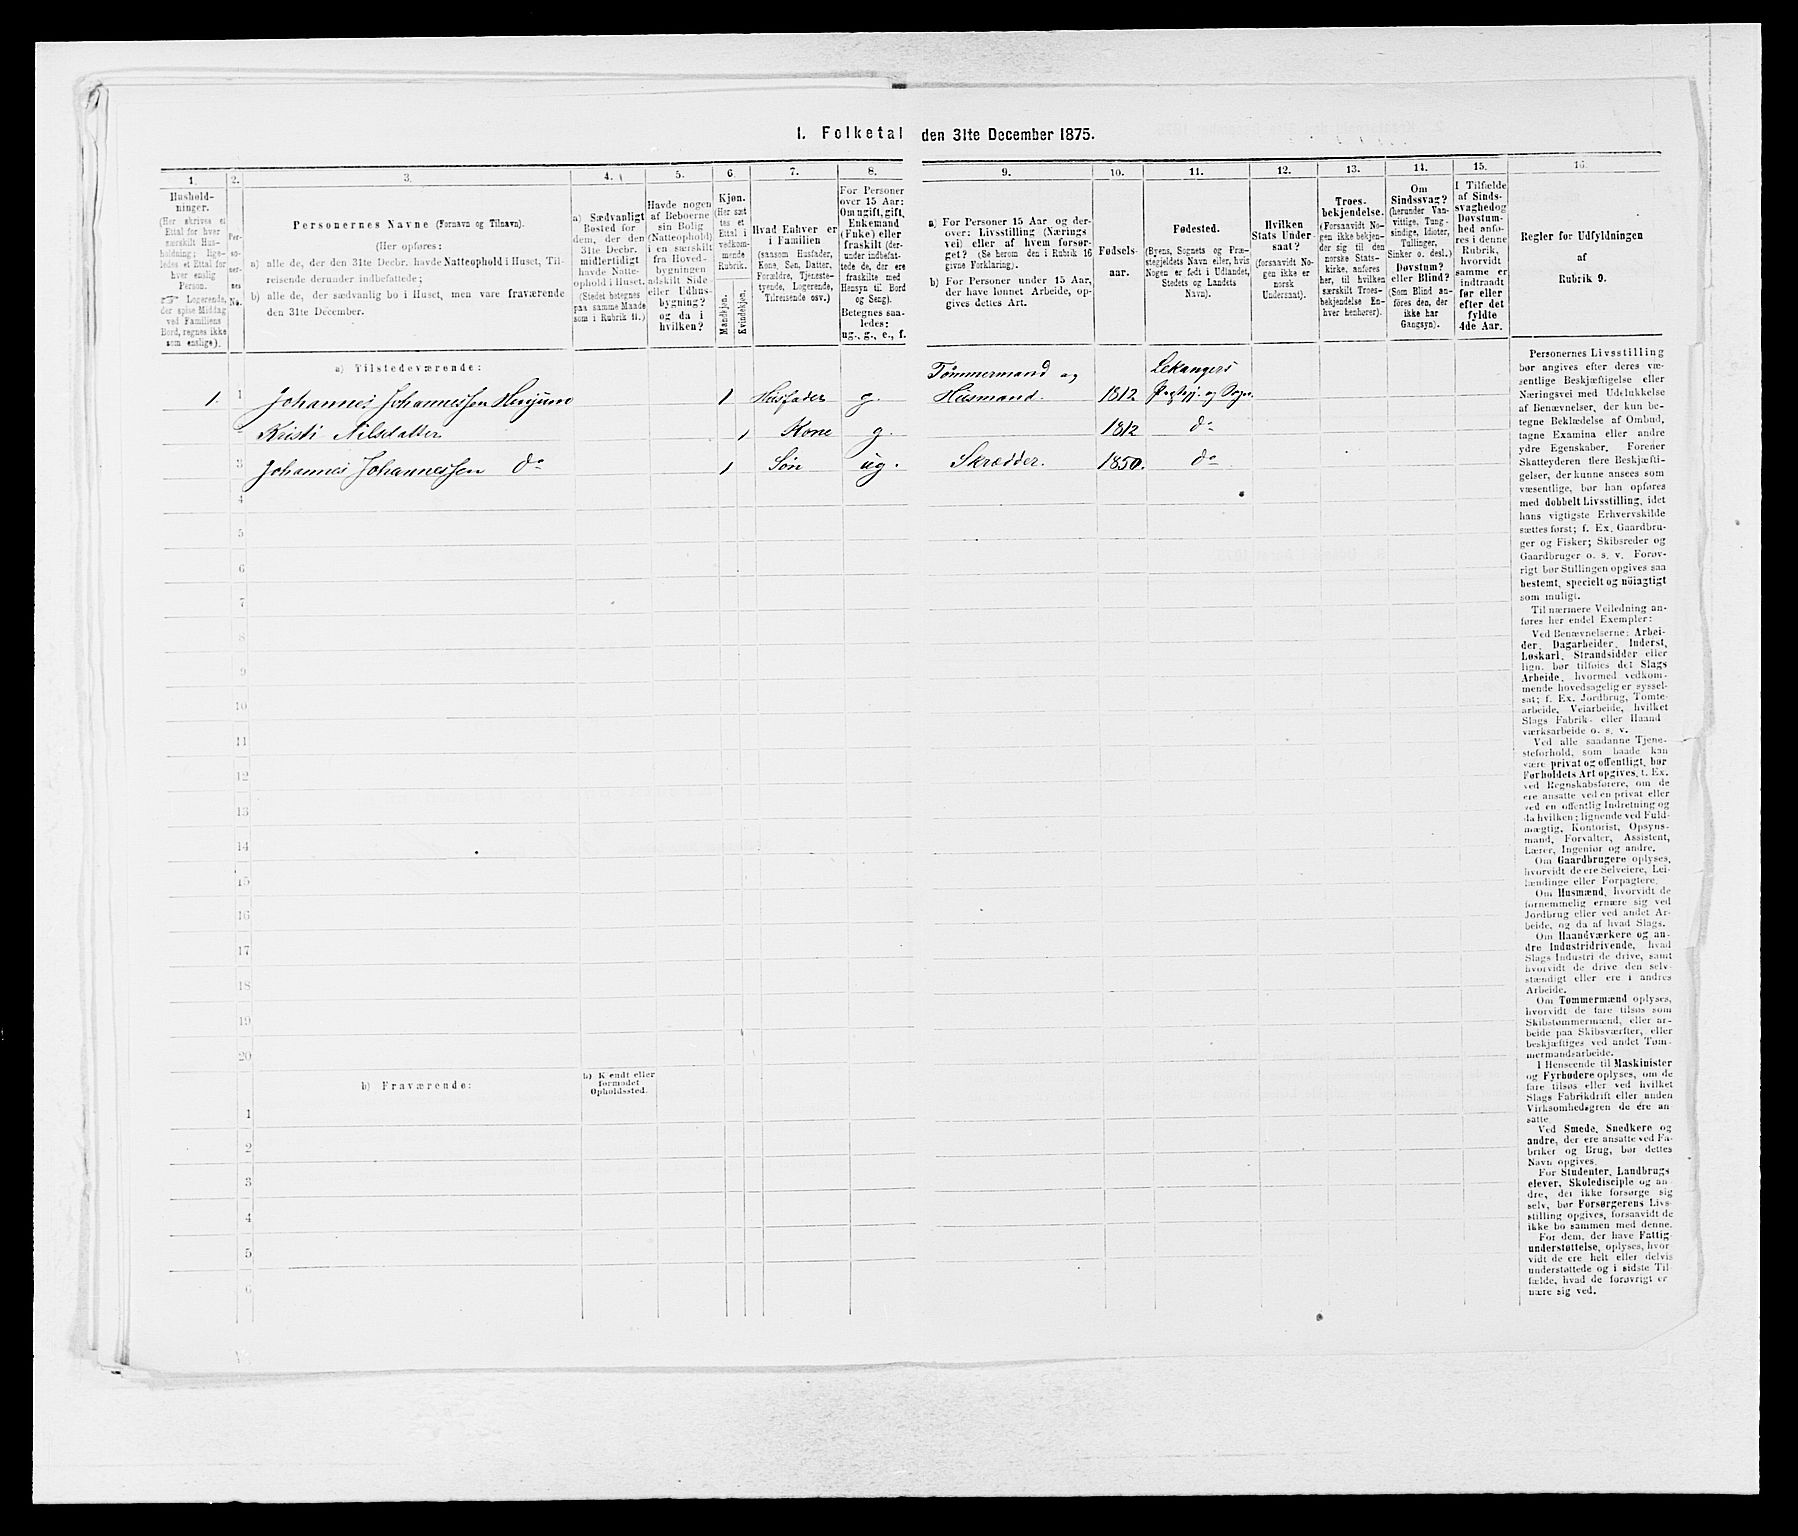 1. Folketal den 31te December 1875.
1.
Hushold-
ninger.
(Her skrives et
Ettal for hver
særskilt Hus-
holdning; lige-
ledes et Ettal for
hver enslig
Person.
Logerende,
der spise Middag
ved Familiens
Bord, regnes ikke
som enslige).
2.
Per-
so-
ner-
nes
No.
3.
Personernes Navne (Fornavn og Tilnavn).
(Her opføres:
a) alle de, der den 31te Decbr. havde Natteophold i Huset, Til-
reisende derunder indbefattede;
b) alle de, der sædvanlig bo i Huset, men vare fraværende
den 31te December.
4.
a) Sædvanligt
Bosted for
dem, der den
31te Decbr.
midlertidigt
havde Natte-
ophold i Huset.
(Stedet betegnes
paa samme Maade
som i Rubrik 11.)
5.
Havde nogen
af Beboerne
sin Bolig
(Natteophold)
i en særskilt
fra Hoved-
bygningen
adskilt Side-
eller Udhus-
bygning?
og da i
hvilken?
6.
Kjøn.
(Her sæt
tes et
Ettal i
vedkom-
mende
Rubrik.
Mandkjøn.
Kvindekjøn.
7.
Hvad Enhver er
i Familien
(saasom Husfader,
Kone, Søn, Datter,
Forældre, Tjeneste-
tyende, Logerende,
Tilreisende osv.)
8.
For Personer
over 15 Aar:
Om ugift, gift,
Enkemand
(Enke) eller
fraskilt (der-
under indbefat-
tede de, der ere
fraskilte med
Hensyn til Bord
og Seng).
Betegnes saa-
ledes:
ug., g., e., f.
9.
a) For Personer 15 Aar og der-
over: Livsstilling (Nærings
vei) eller af hvem forsør-
get? (Se herom den i Rubrik 16
givne Forklaring).
b) For Personer under 15 Aar,
der have lønnet Arbeide, op-
gives dettes Art.
10.
Fødsels-
aar.
11.
Fødested.
(Byens, Sognets og Præ-
stegjeldets Navn eller, hvis
Nogen er født i Udlandet,
Stedets og Landets
Navn).
12.
Hvilken
Stats Under-
saat?
(forsaavidt No-
gen ikke er
norsk
Undersaat).
13.
Troes-
bekjendelse.
(Forsaavidt No-
gen ikke bekjen-
der sig til den
norske Stats-
kirke, anføres
her, til hvilken
særskilt Troes-
bekjendelse En-
hver henhører).
14.
Om
Sindssvag?
(herunder Van-
vittige, Tung-
sindige, Idioter,
Tullinger,
Sinker o. desl.)
Døvstum?
eller Blind?
(Som Blind an-
føres den, der
ikke har
Gangsyn).
15.
I Tilfælde
af Sinds-
svaghed og
Døvstum-
hed anfø-
res i denne
Rubrik,
hvorvidt
samme er
indtraadt
før eller
efter det
fyldte
4de Aar.
16.
Regler for Udfyldningen
af
Rubrik 9.
a) Tilstedeværende:
1. 1 Johannes Johannessen Henjum 1 Husfader g. Tømmermand og Huusmand. 1812 Lekangers Præstegj. og Sogn.
Kristi Nilsdatter 1 Kone g. 1812 do
3 Johannes Johannessen do 1 Søn ug. Skrædder. 1850. do
4
5
6
7
8
9
10
11
12
13
14
15
16
17
18
19
20
b) Fraværende:
b) Kjendt eller
formodet
Opholdssted.
1
2
3
4
5
6
Personernes Livsstilling
bør angives efter deres væ-
sentlige Beskjæftigelse eller
Næringsvei med Udelukkelse
af Benævnelser, der kun be-
tegne Beklædelse af Ombud,
tagne Examina eller andre
ydre Egenskaber. Forener
Skatteyderen flere Beskjæfti-
gelser, der kunne ansees som
væsentlige, bør han opføres
med dobbelt Livsstilling, idet
hans vigtigste Erhvervskilde
sættes først; f. Ex. Gaardbru-
ger og Fisker; Skibsreder og
Gaardbruger o. s. v. Forøv-
rigt bør Stillingen opgives saa
bestemt, specielt og nøiagtigt
som muligt.
Til nærmere Veiledning an-
føres her endel Exempler:
Ved Benævnelserne: Arbei-
der, Dagarbeider, Inderst,
Løskarl, Strandsidder eller
lign. bør tilføies det Slags
Arbeide, hvormed vedkom-
mende hovedsagelig er syssel-
sat; f. Ex. Jordbrug, Tomte-
arbeide, Veiarbeide, hvilket
Slags Fabrik- eller Haand-
værksarbeide o. s. v.
Ved alle saadanne Tjene-
steforhold, som baade kan
være privat og offentligt, bør
Forholdets Art opgives, f. Ex.
ved Regnskabsførere, om de
ere ansatte ved en privat eller
ved en offentlig Indretning og
da hvilken; lignende ved Fuld-
mægtig, Kontorist, Opsyns-
mand, Forvalter, Assistent,
Lærer, Ingeniør og andre.
Om Gaardbrugere oplyses,
hvorvidt de ere Selveiere, Lei-
lændinge eller Forpagtere.
Om Husmænd, hvorvidt de
fornemmelig ernære sig ved
Jordbrug eller ved andet Ar-
beide, og da af hvad Slags.
Om Haandværkere og an-
dre Industridrivende, hvad
Slags Industri de drive, samt
hvorvidt de drive den selv-
stændigt eller ere i andres
Arbeide.
Om Tømmermænd oplyses,
hvorvidt de fare tilsøs som
Skibstømmermænd, eller ar-
beide paa Skibsværfter, eller
beskjæftiges ved andet Tøm-
mermandsarbeide.
I Henseende til Maskinister
og Fyrbødere oplyses, om de
fare tilsøs eller ved hvilket
Slags Fabrikdrift eller anden
Virksomhedsgren de ere an-
satte.
Ved Smede, Snedkere og
andre, der ere ansatte ved Fa-
briker og Brug, bør dettes
Navn opgives.
For Studenter, Landbrugs
elever, Skoledisciple og an-
dre, der ikke forsørge sig
selv, bør Forsørgerens Livs-
stilling opgives, forsaavidt de
ikke bo sammen med denne.
For dem, der have Fattig-
understøttelse, oplyses, hvor-
vidt de ere helt eller delvis
understøttede og i sidste Til-
fælde, hvad de forøvrigt er-
nære sig ved.